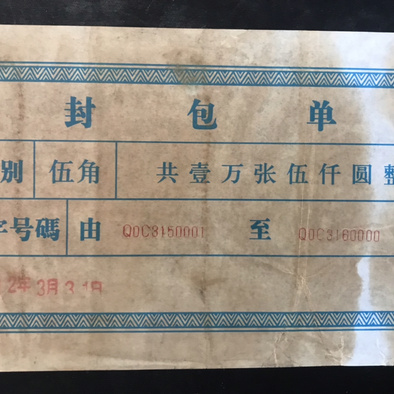 封包单
别 伍角 共壹万张伍仟圆整
字号碼 由 Q0C3150001 至 Q0C3160000
2年3月3 日